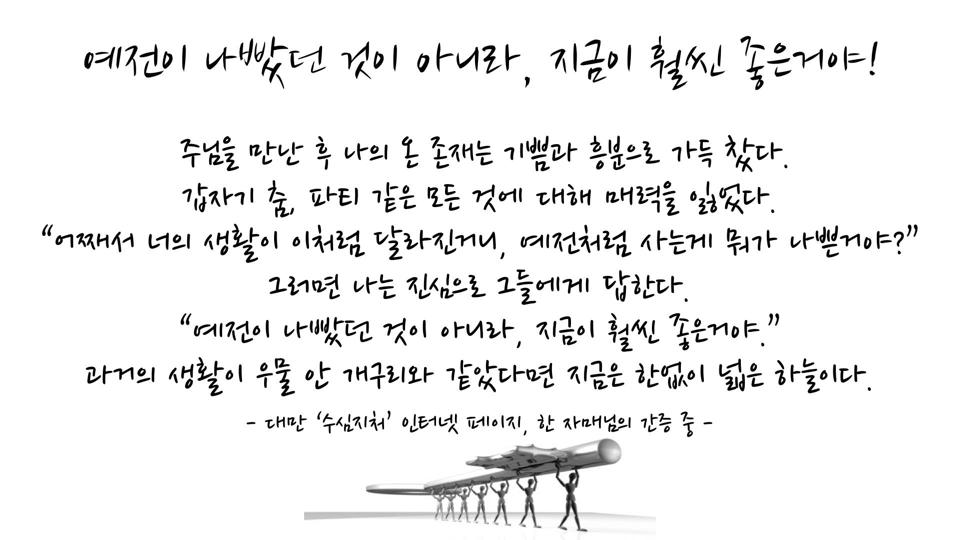 예전이 나빴던 것이 아니라, 지금이 훨씬 좋은거야!
주님을 만난 후 나의 온 존재는 기쁨과 흥분으로 가득 찼다.
갑자기 춤, 파티 같은 모든 것에 대해 매력을 잃었다.
“어째서 너의 생활이 이처럼 달라진거니, 예전처럼 사는게 뭐가 나쁜거야?”
그러면 나는 진심으로 그들에게 답한다.
“예전이 나빴던 것이 아니라, 지금이 훨씬 좋은거야.”
과거의 생활이 우물 안 개구리와 같았다면 지금은 한없이 넓은 하늘이다.
- 대만 ‘수심지처’ 인터넷 페이지, 한 자매님의 간증 중 -